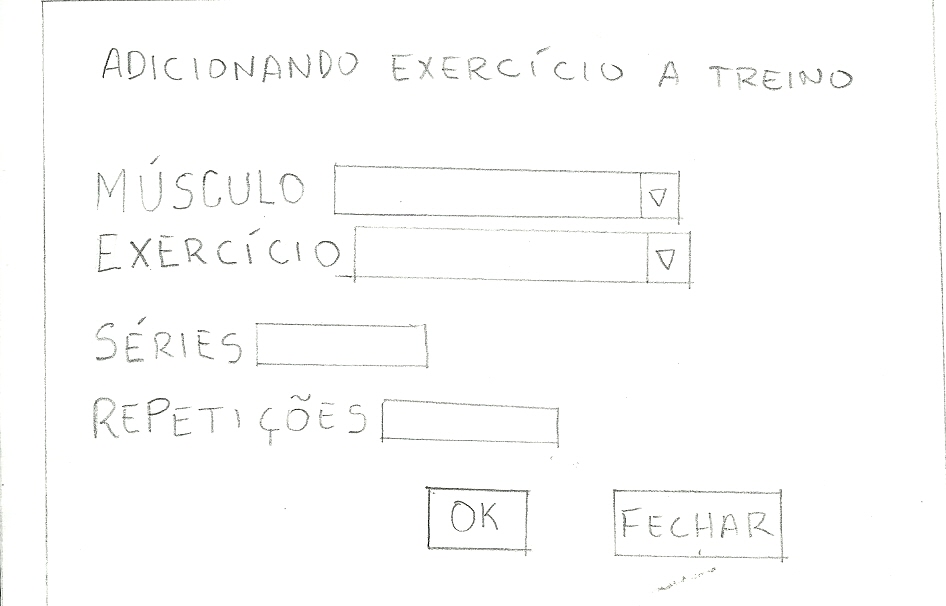 ADICIONANDO EXERCÍCIO A TREINO
MÚSCULO
EXERCÍCIO
SÉRIES
REPETIÇÕES
OK FECHAR